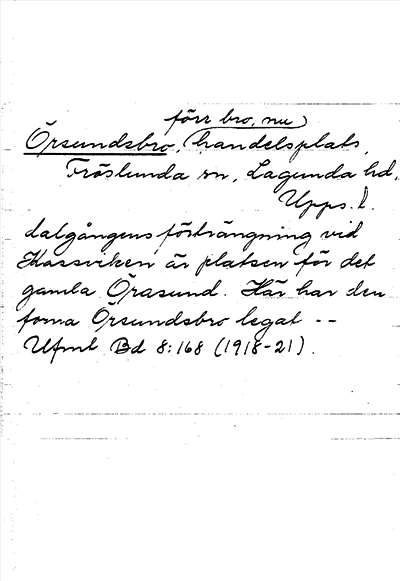 förr bro, nu)
Örsundsbro, (handelsplats,
Fröslunda sn, Lagunda hd,
Upps. l.
dalgångens förträngning vid
Hassviken är platsen för det
gamla Örasund. Här har den
forna Örsundsbro legat --
Ufmt Bd 8:168 (1918-21).